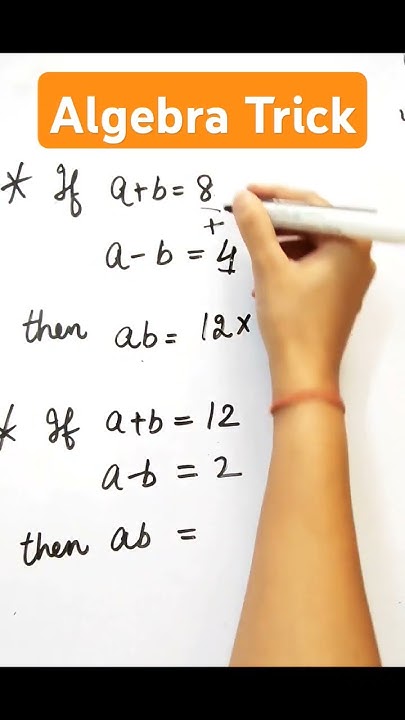 Algebra Trick
* If a+b = 8
+
a-b = 4
then ab = 12x
* If a+b = 12
a-b = 2
then ab =